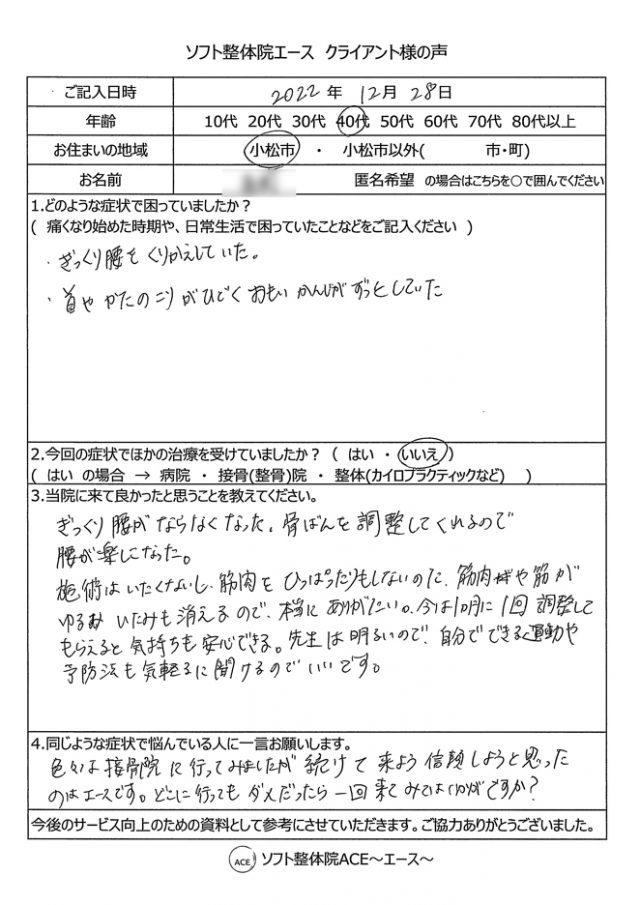 ソフト整体院エース クライアント様の声
ご記入日時 2022年 12月 28日
年齢 10代 20代 30代 40代 50代 60代 70代 80代以上
お住まいの地域 小松市 ・ 小松市以外( 市・町)
お名前 匿名希望 の場合はこちらを○で囲んでください
1.どのような症状で困っていましたか?
( 痛くなり始めた時期や、日常生活で困っていたことなどをご記入ください )
・ぎっくり腰をくりかえしていた。
・首やかたのこりがひどくおもいかんじがずっとしていた
2.今回の症状でほかの治療を受けていましたか? ( はい ・ いいえ )
( はい の場合 → 病院 ・ 接骨(整骨)院 ・ 整体(カイロプラクティックなど) )
3.当院に来て良かったと思うことを教えてください。
ぎっくり腰がならなくなった。骨ばんを調整してくれるので
腰が楽になった。
施術はいたくないし、筋肉をひっぱったりもしないのに、筋肉や筋が
ゆるみ いたみも消えるので、本当にありがたい。今は1ヵ月に1回調整して
もらえると気持ちも安心できる。先生は明るいので、自分でできる運動や
予防法も気軽るに聞けるのでいいです。
4.同じような症状で悩んでいる人に一言お願いします。
色々な接骨院に行ってみましたが続けて来よう信頼しようと思った
のはエースです。どこに行ってもダメだったら一回来てみてはいかがですか?
今後のサービス向上のための資料として参考にさせていただきます。ご協力ありがとうございました。
ACE ソフト整体院ACE~エース~